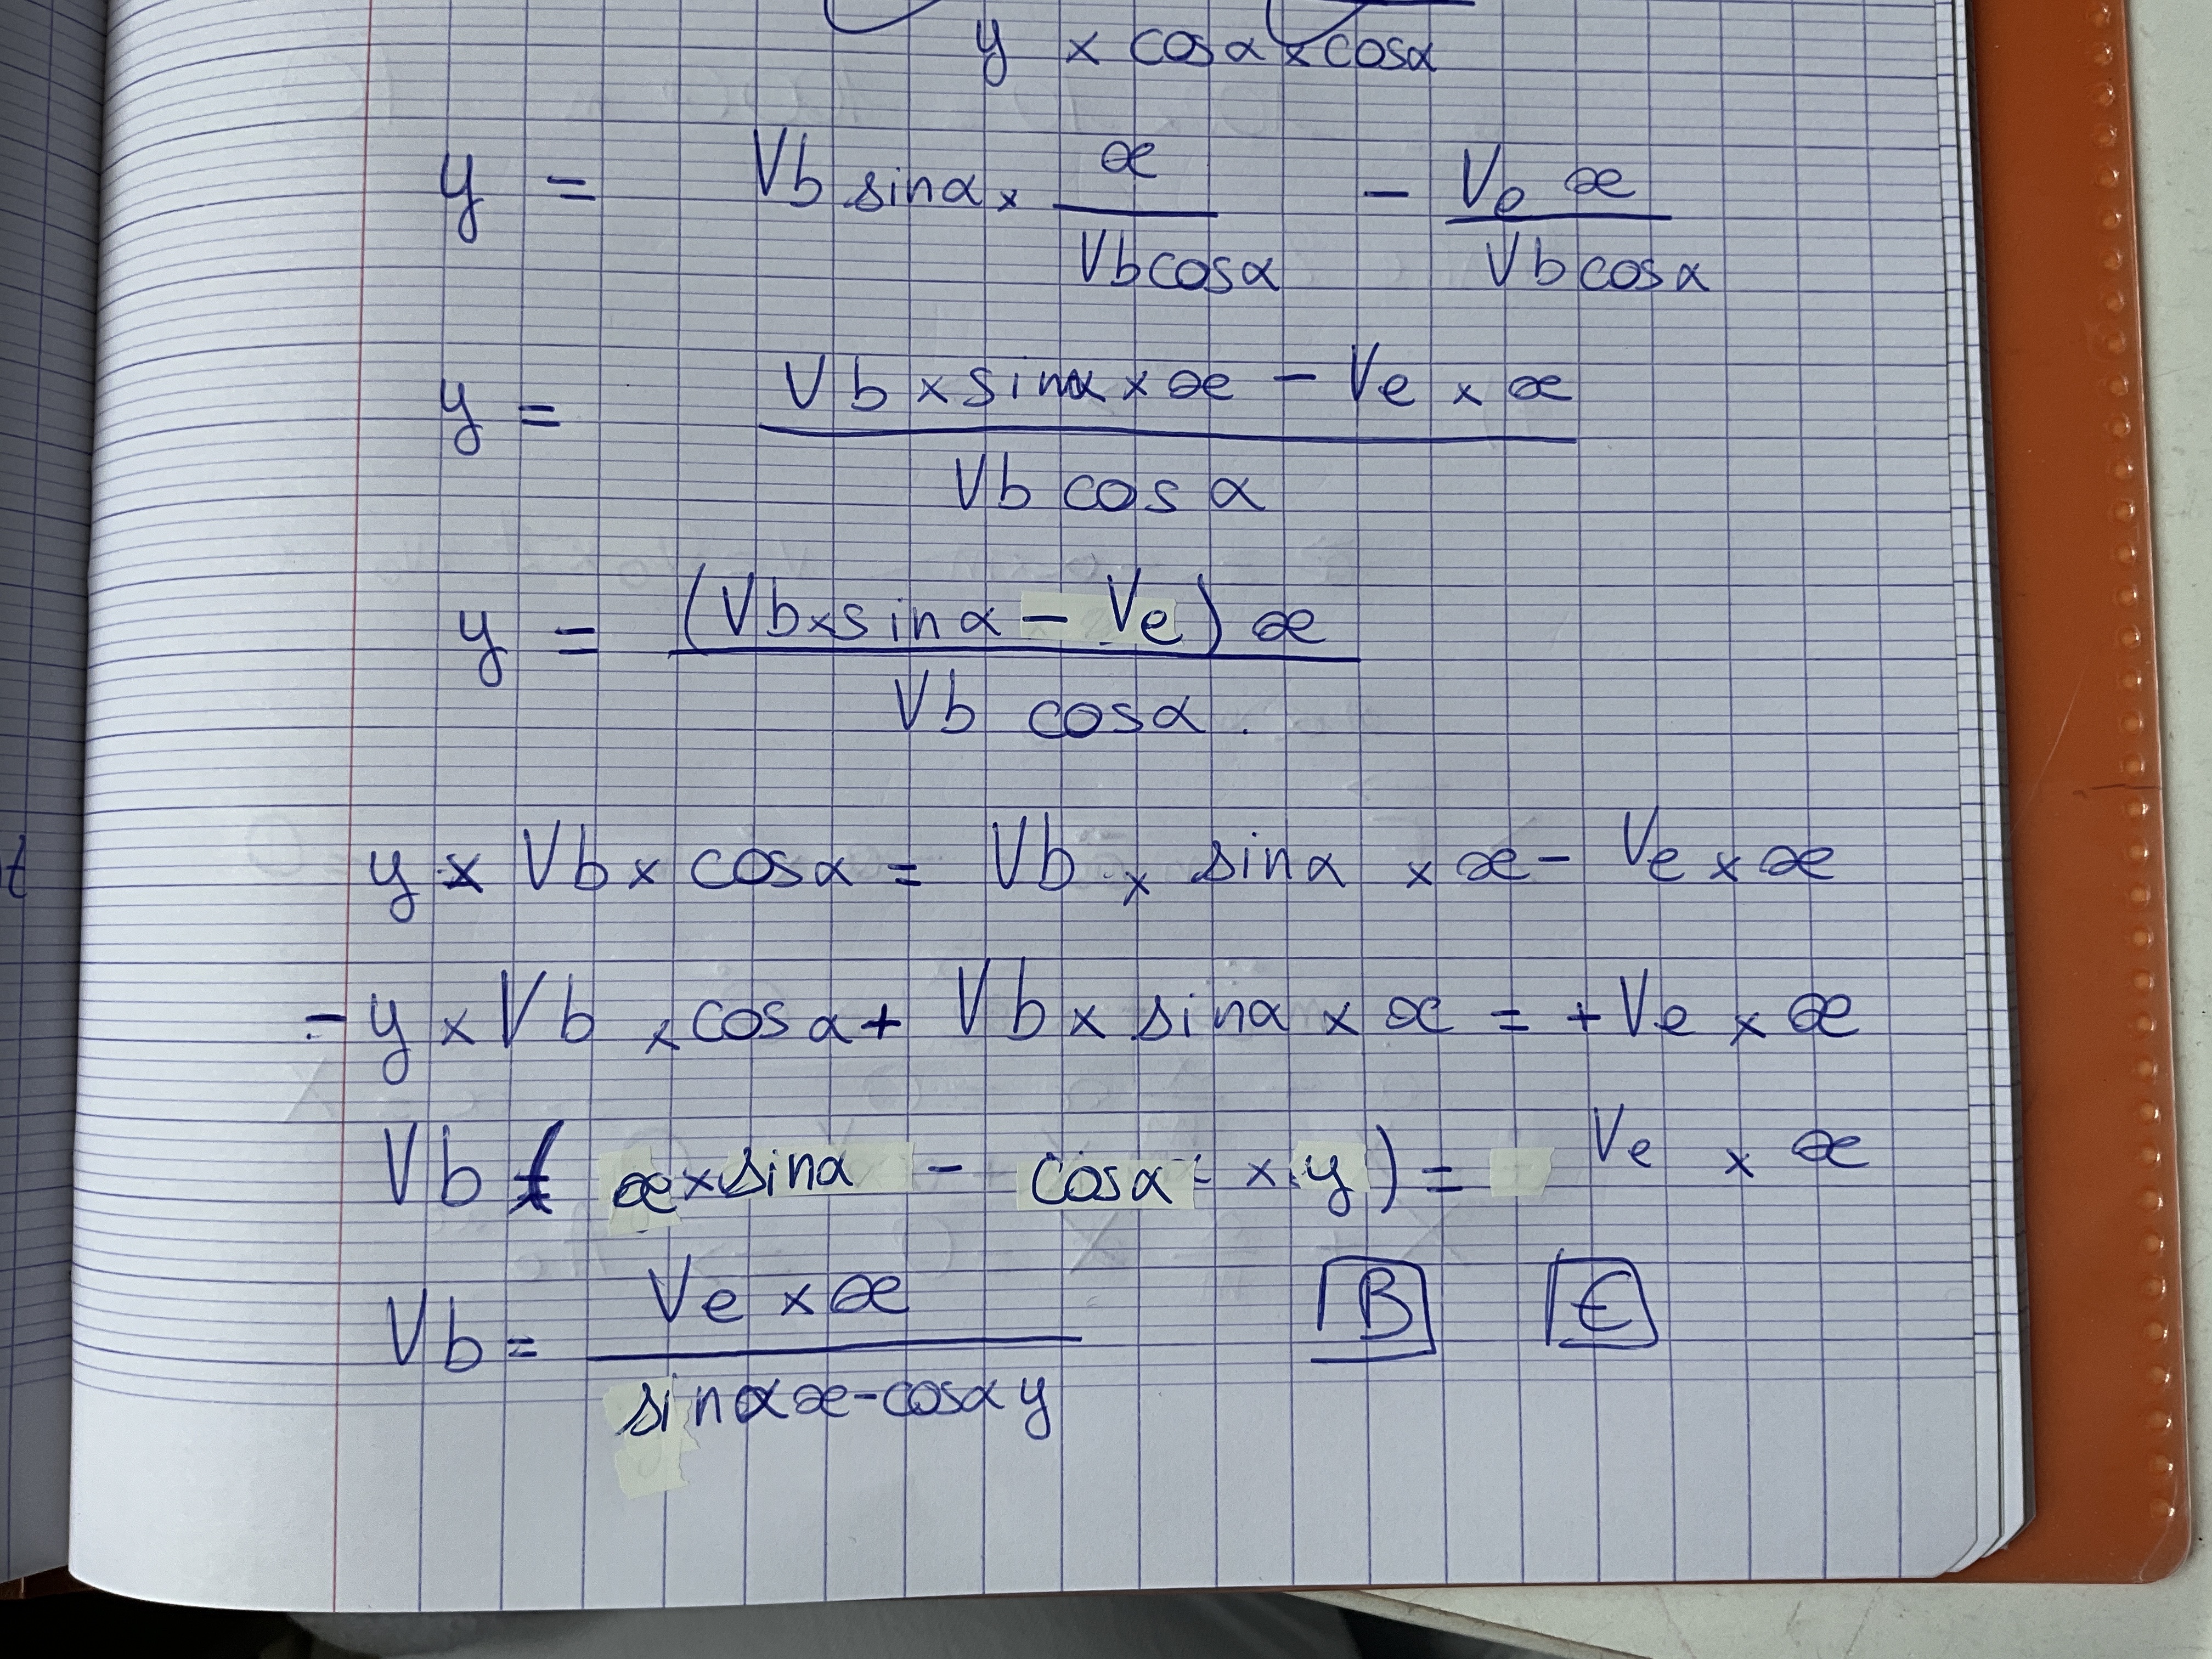 y × cosα × cosα
y = Vb sinα × x / Vb cosα − Ve x / Vb cosα
y = Vb × sinα × x − Ve × x / Vb cos α
y = (Vb × sin α − Ve) x / Vb cosα.
y × Vb × cosα = Vb × sinα × x − Ve × x
− y × Vb × cos α + Vb × sinα × x = + Ve × x
Vb ( x × sinα − cosα × y ) = Ve × x
Vb = Ve × x / sinα x − cosα y B E